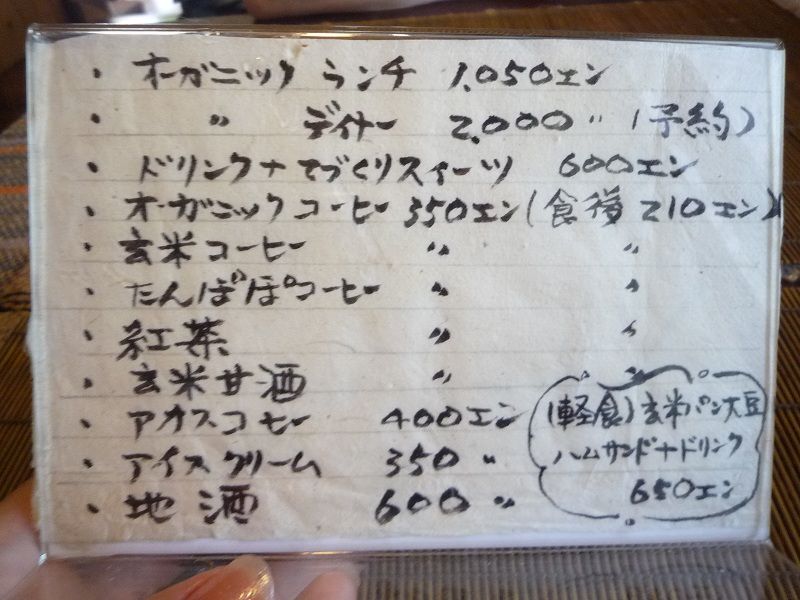 ・オーガニック ランチ 1,050エン
・ 〃 ディナー 2,000 〃 (予約)
・ドリンク+てづくりスィーツ 600エン
・オーガニックコーヒー 350エン(食後 210エン)
・玄米コーヒー 〃 〃
・たんぽぽコーヒー 〃 〃
・紅茶 〃 〃
・玄米甘酒 〃 〃
・アイスコーヒー 400エン
・アイスクリーム 350 〃
・地酒 600 〃
(軽食)玄米パン大豆
ハムサンド+ドリンク
650エン